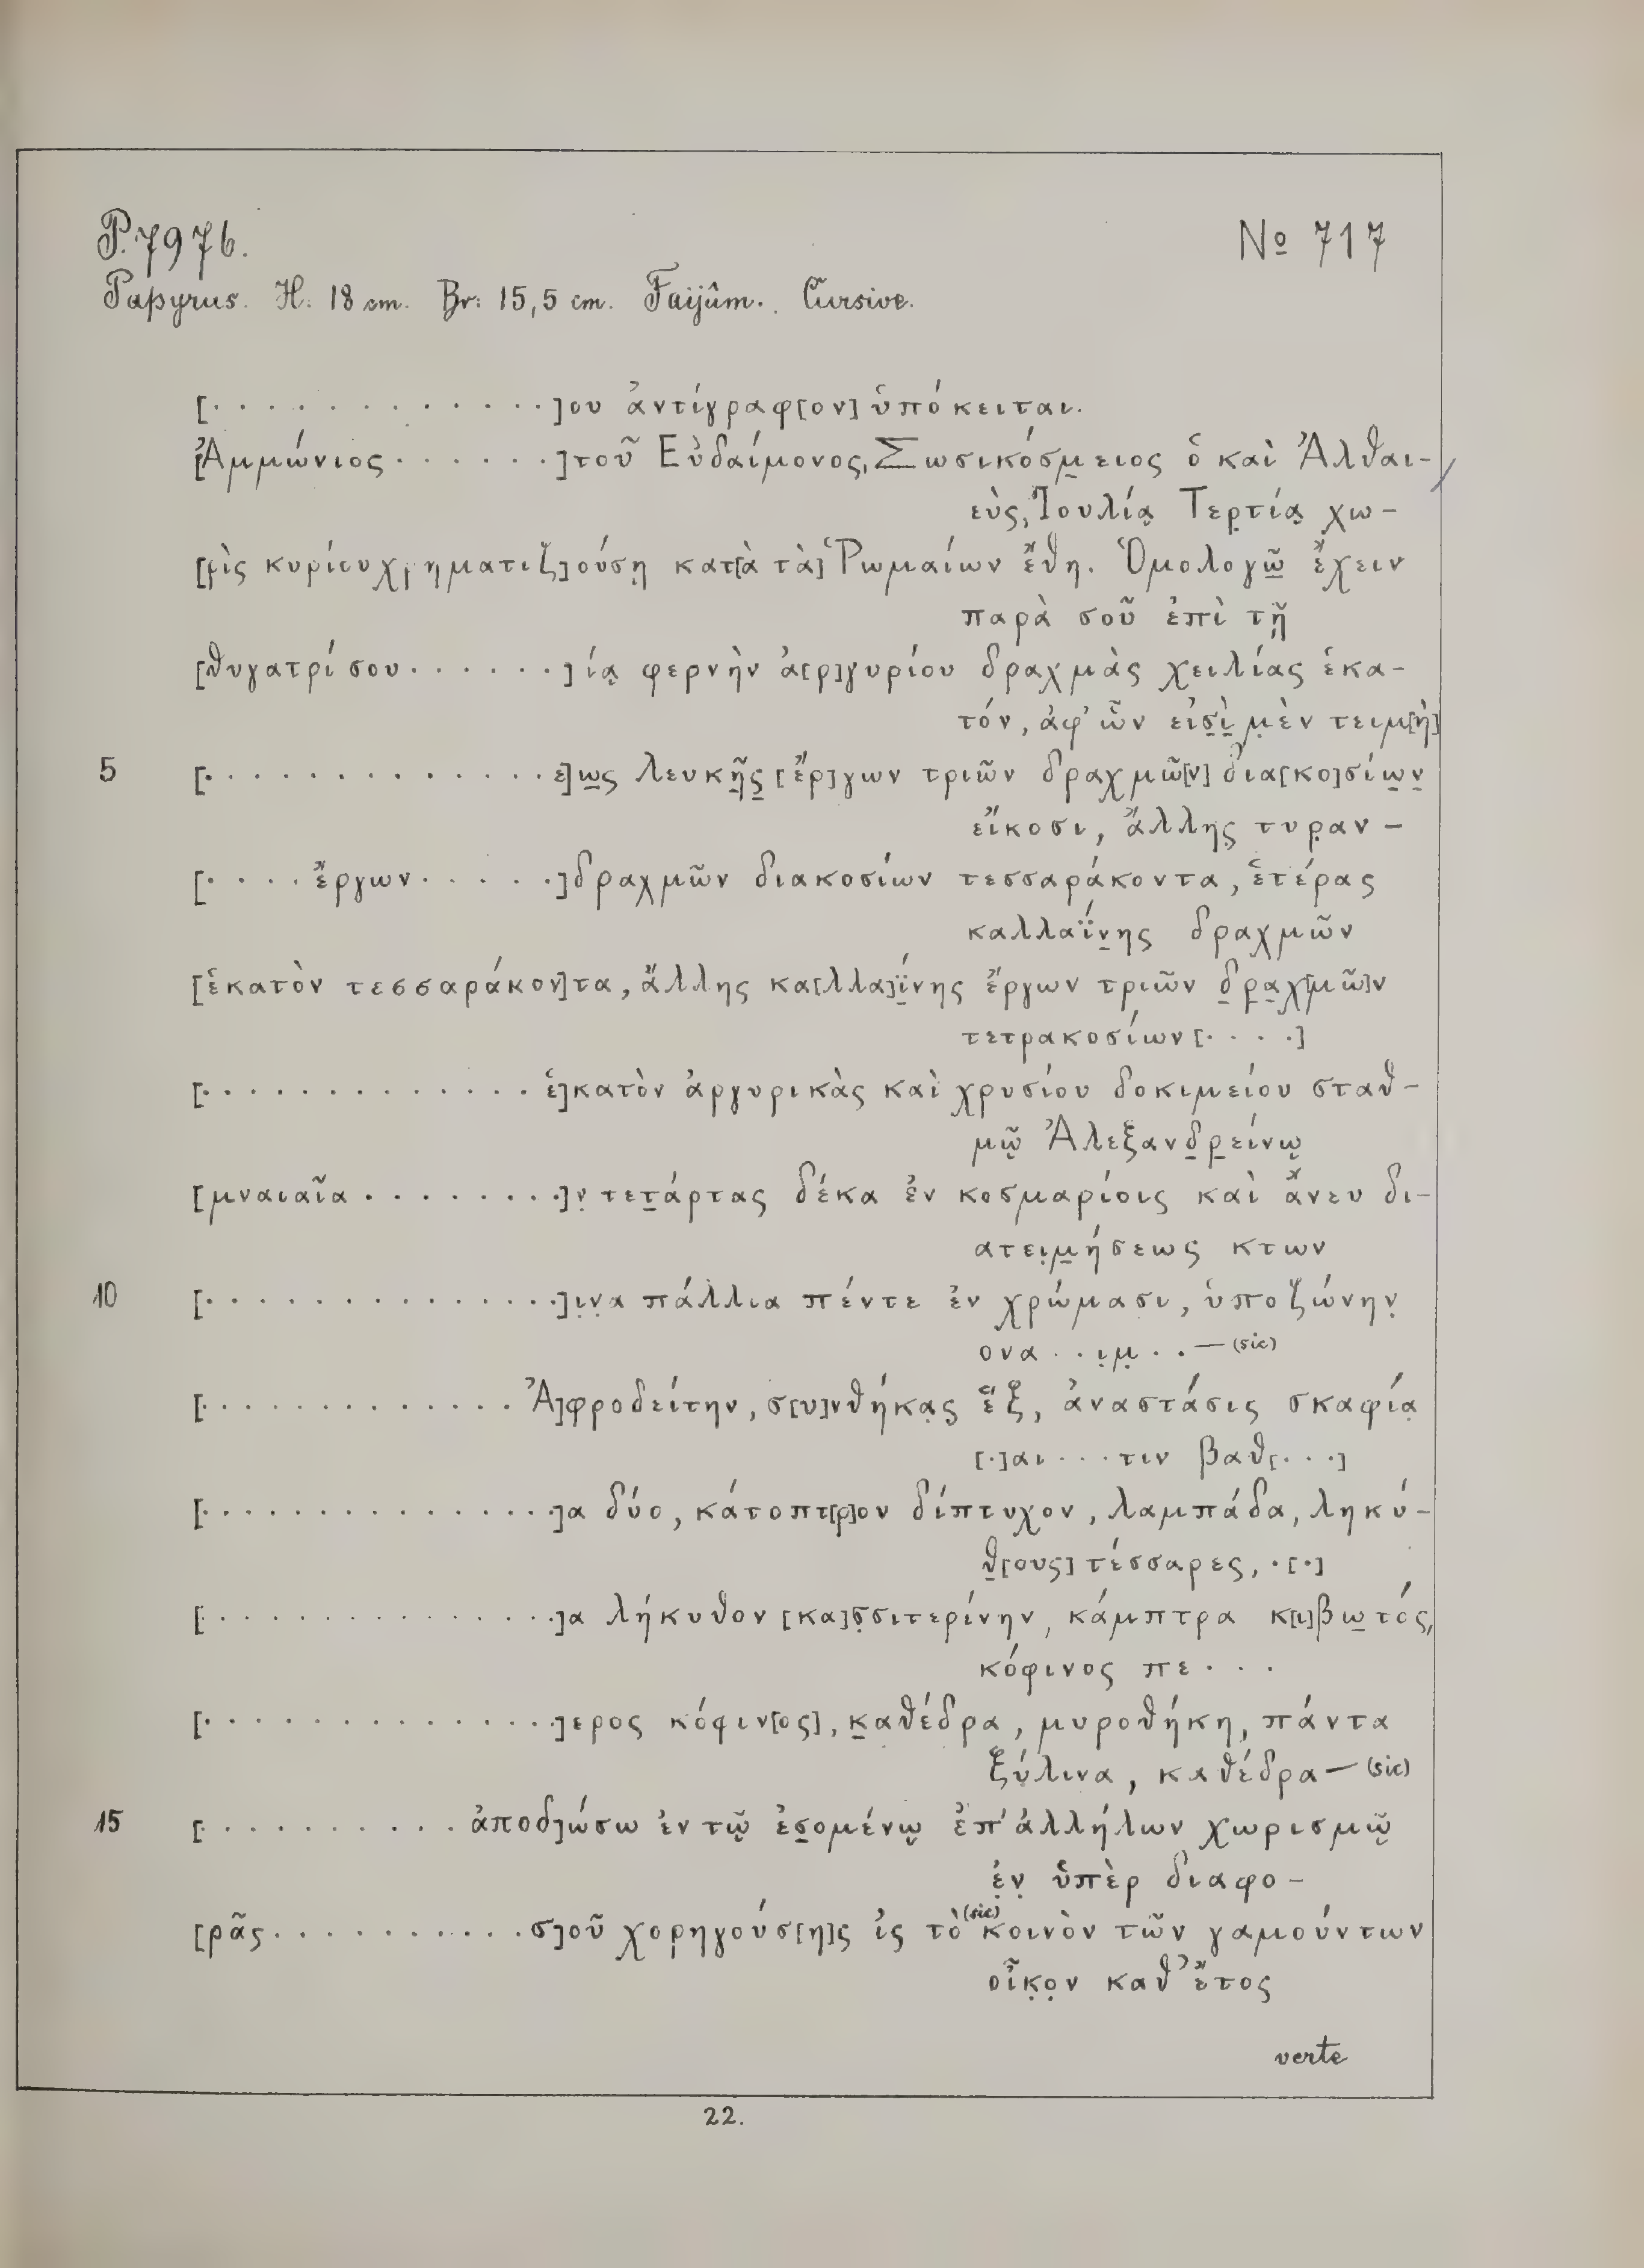 P. 7976.
№ 717
Papyrus. H: 18 cm. Br: 15,5 cm. Faijûm. Cursive.
[· · · · · · · · · · · · ·]ου ἀντίγραφ[ον] ὑπόκειται.
[Ἀμμώνιος · · · · · ·]τοῦ Εὐδαίμονος, Σωσικόσμ̣ειος ὁ καὶ Ἀλθαι-
εὺς, Ἰουλίᾳ Τερ̣τίᾳ χω-
[ρὶς κυρίου χρηματιζ]ούσῃ κατ[ὰ τὰ] Ῥωμαίων ἔθη. Ὁμολογῶ̣ ἔχειν
παρὰ σοῦ ἐπὶ τῇ
[θυγατρί σου · · · · · ·]ίᾳ φερνὴν ἀ[ρ]γυρίου δραχμὰς χειλίας ἑκα-
τόν, ἀφ' ὧν εἰσ̣ὶ̣ μ̣ὲν τειμ[ὴ]
5 [· · · · · · · · · · · · · ε]ω̣ς λευκῆ̣ς̣ [ἔρ]γων τριῶν δραχμῶ[ν] δια[κο]σίω̣ν̣
εἴκοσι, ἄλλης̣ τυρ̣αν-
[· · · · ἔργων · · · · ·]δραχμῶν διακοσίων τεσσαράκοντα, ἑτέρας
καλλαΐν̣ης δραχμῶν
[ἑκατὸν τεσσαράκον]τα, ἄλλης κα[λλα]ΐ̣νης ἔργων τριῶν δ̣ρ̣α̣χ[μῶ]ν
τετρακοσίων [· · · ·]
[· · · · · · · · · · · · ἑ]κατὸν ἀργυρικὰς καὶ χρυσίου δοκιμείου σταθ-
μῷ Ἀλεξανδ̣ρ̣είνῳ
[μναιαῖα · · · · · · · ·]ν̣ τετ̣άρτας δέκα ἐν κοσμαρίοις καὶ ἄνευ δι-
ατει̣μ̣ήσεως κτων
10 [· · · · · · · · · · · · · ·]ι̣ν̣α πάλλια πέντε ἐν χρώμασι, ὑποζώνην̣
ονα · · ι̣μ̣ · · — (sic)
[· · · · · · · · · · · · Ἀ]φροδείτην, σ[υ]νθήκα̣ς ἕξ, ἀναστάσις σκαφία̣
[·]αι · · · τιν βαθ[· · ·]
[· · · · · · · · · · · · · ·]α δύο, κάτοπτ[ρ]ον δίπτυχον, λαμπάδα, ληκύ-
θ̣[ους] τέσσαρες, · [·]
[· · · · · · · · · · · · · ·]α λήκυθον [κα]σ̣σιτερίνην, κάμπτρα κ[ι]βω̣τός,
κόφινος πε · · ·
[· · · · · · · · · · · · · ·]ερος κόφιν[ος], κ̣αθέδρα, μυροθήκη, πάντα
ξύ̣λινα, καθέδρα — (sic)
15 [· · · · · · · · · · ἀποδ]ώσω ἐν τῷ ἐσ̣ομένῳ ἐπ' ἀλλήλων χωρισμῷ
ἐ̣ν̣ ὑπὲρ διαφο-
[ρᾶς · · · · · · · · · · σ]οῦ χορ̣ηγούσ[η]ς ἰς τὸ (sic) κοινὸν τῶν γαμούντων
οἶκ̣ο̣ν καθ' ἔτος
verte
22.